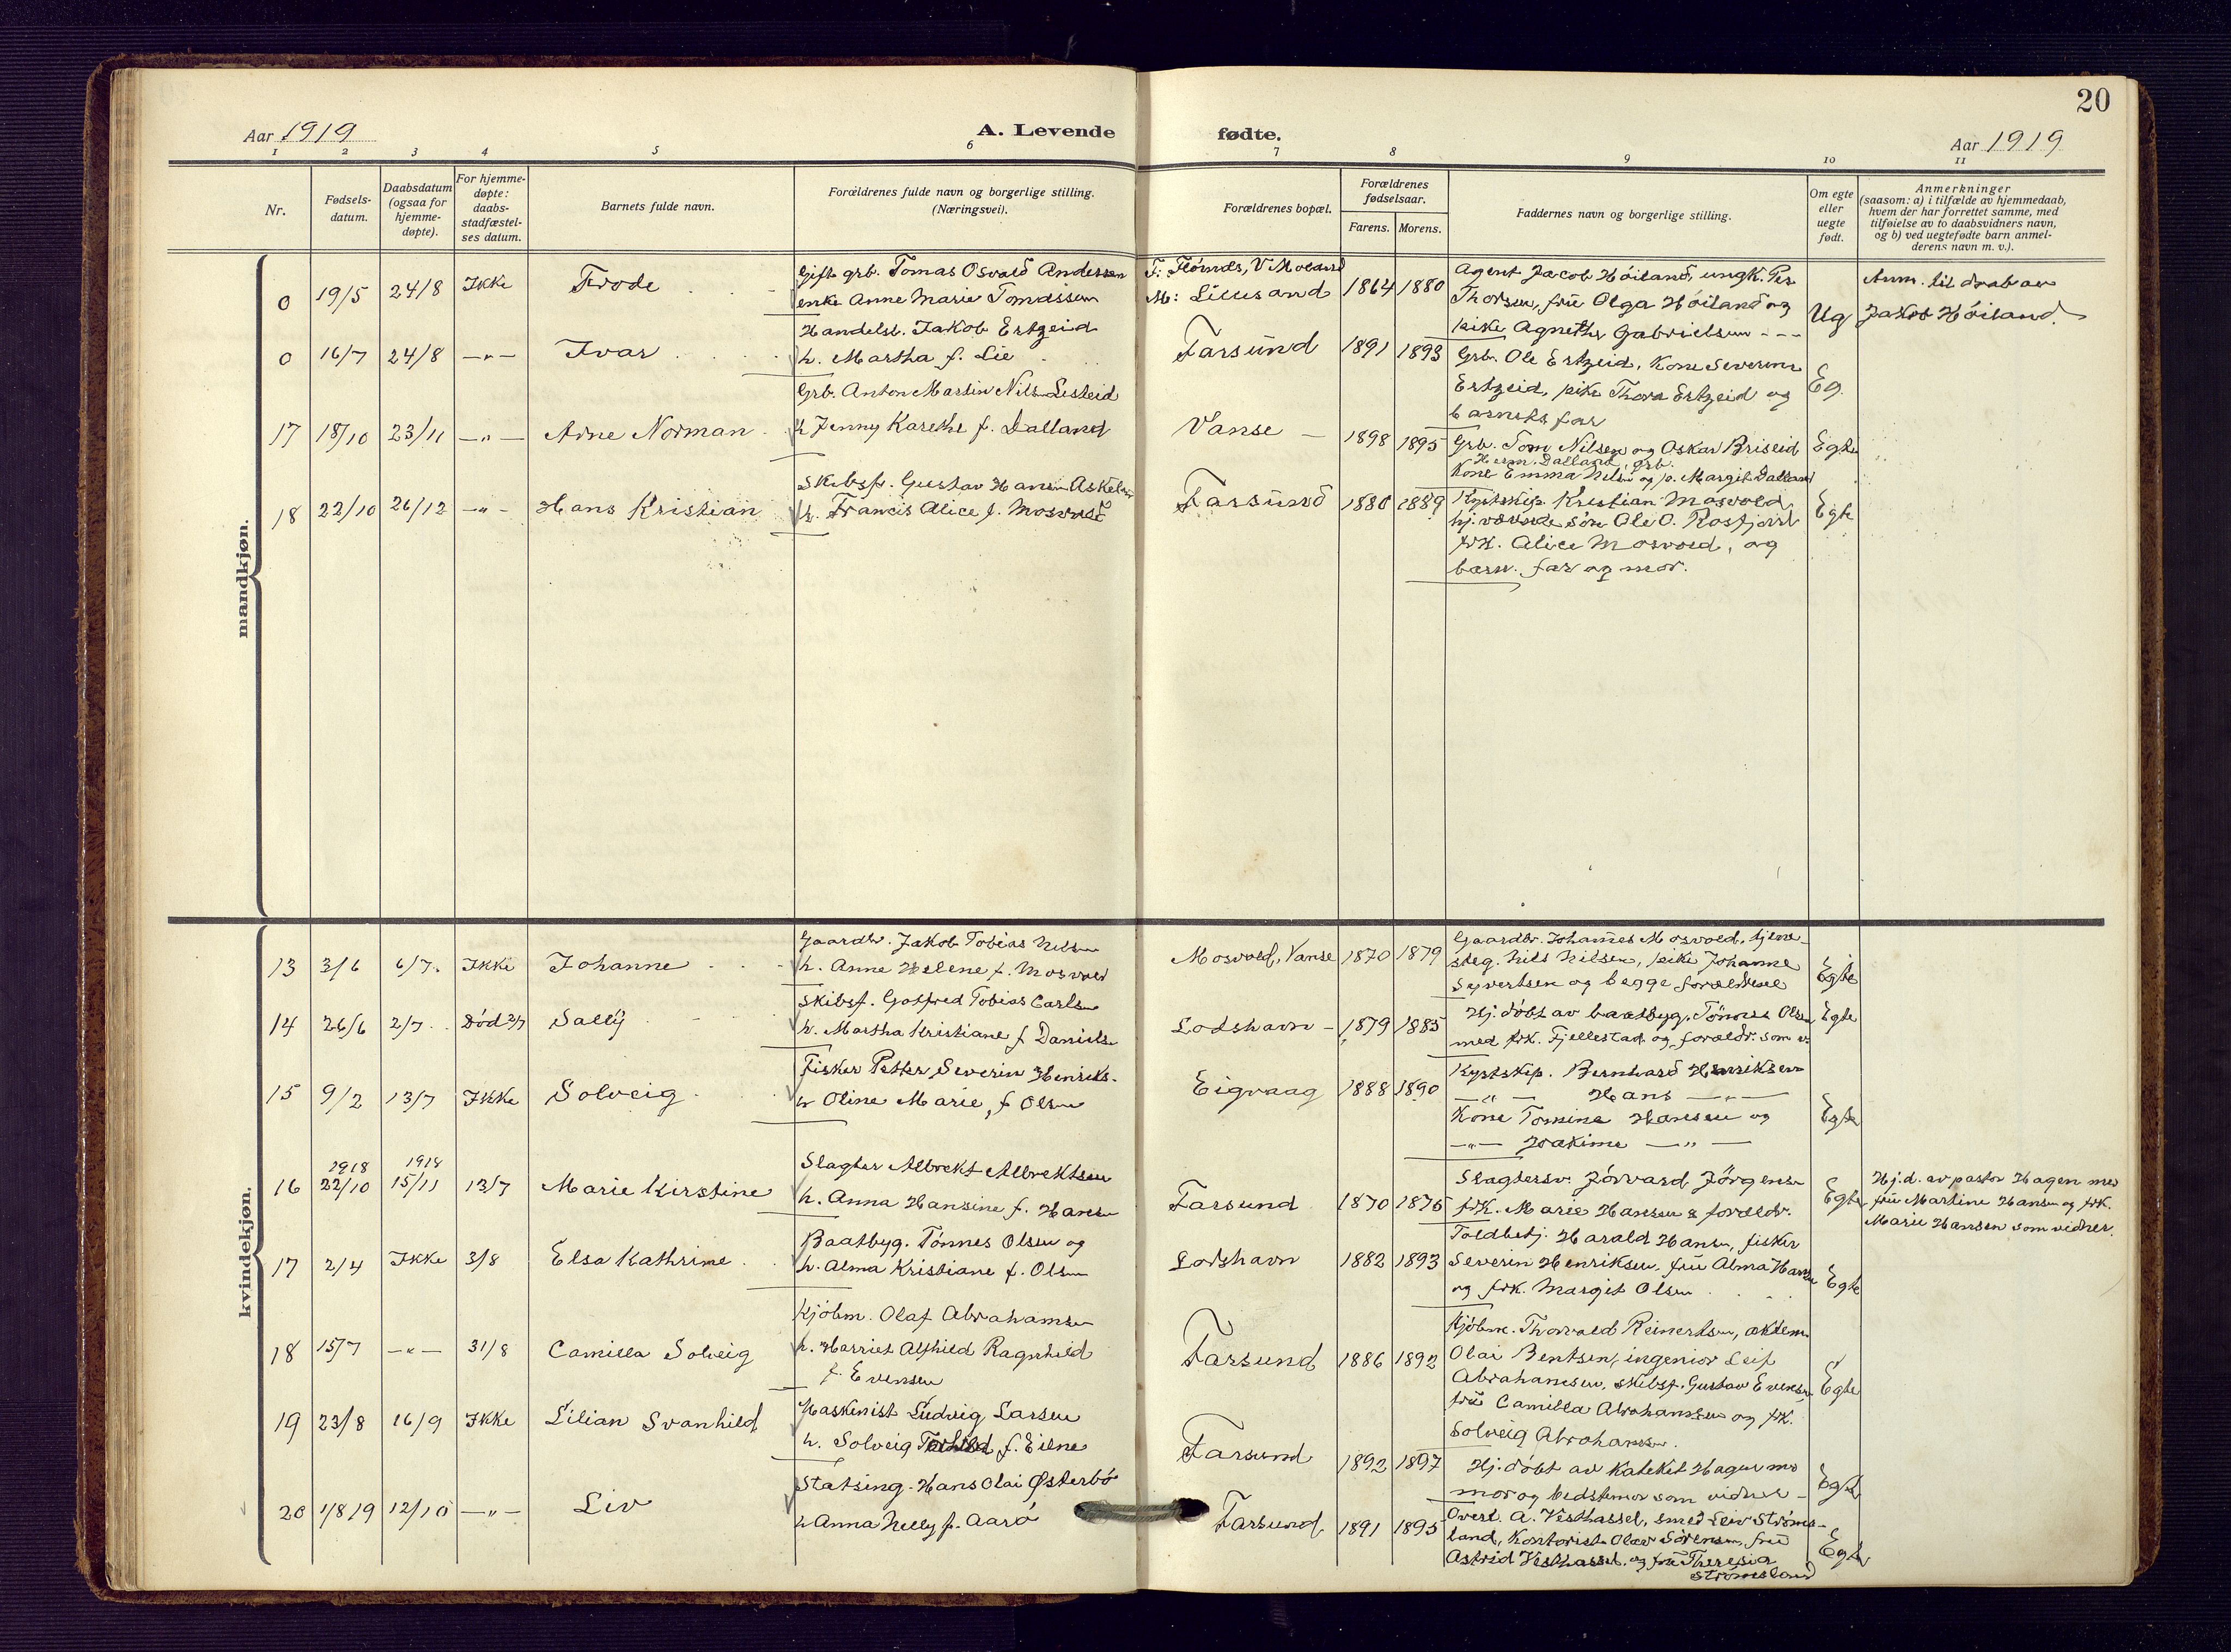 20
Aar 1919
A. Levende fødte.
Aar 1919
1 2 3 4 5 6 7 8 9 10 11
Nr.
Fødsels-
datum.
Daabsdatum
(ogsaa for
hjemme-
døpte).
For hjemme-
døpte:
daabs-
stadfæstel-
ses datum.
Barnets fulde navn.
Forældrenes fulde navn og borgerlige stilling.
(Næringsvei).
Forældrenes bopæl.
Forældrenes
fødselsaar.
Farens. Morens.
Faddernes navn og borgerlige stilling.
Om egte
eller
uegte
født.
Anmerkninger
(saasom: a) i tilfælde av hjemmedaab,
hvem der har forrettet samme, med
tilføielse av to daabsvidners navn,
og b) ved uegtefødte barn anmel-
derens navn m. v.).
mandkjøn.
0 19/5 24/8 Ikke Frode
Gift grb. Tomas Osvald Andersen
enke Anne Marie Tomassen
F: V Moland
M: Lillesand 1864 1880
Agent Jacob Höiland, ungk. Per
Thorsen, frü Olga Höiland og
pike Agnethe Gabrielsen
Ug
Anm. til daab av
Jakob Höiland.
0 16/7 24/8 -"- Ivar
Handelsb. Jakob Ertzeid
h. Martha f. Lie
Farsünd 1891 1893
Grb. Ole Ertzeid, Kone Severine
Ertzeid, pike Thora Ertzeid og
barnets far
Eg.
17 18/10 23/11 -"- Arne Norman
Grb. Anton Martin Nilsen Listeid
h Jenny Karethe f. Dalland
Vanse - 1898 1895
Grb. Tom Nilsen og Oskar Briseid
Herm. Dalland, grb.
Kone Emma Nilsen og p. Margit Dalland
Egte
18 22/10 26/12 -"- Hans Kristian
Skibsf. Gustav Hansen Askelsen
h. Francis Alice f. Mosvold
Farsünd 1880 1889
Kystskip. Kristian Mosvold,
hj. værende sön Ole O. Rosfjord
frk. Alice Mosvold, og
barn. far og mor.
Egte
kvindekjøn.
13 3/6 6/7. Ikke Johanne
Gaardbr. Jakob Tobias Nilsen
h. Anne Helene f. Mosvold
Mosvold, Vanse 1870 1879
Gaardbr. Johannes Mosvold, tjene-
steg. Nils Nilsen, pike Johanne
Syvertsen og begge forældrene
Egte
14 26/6 2/7. Död 2/7 Sally
Skibsf. Gotfred Tobias Carlsen
h. Martha Kristiane f Danielsen
Lodshavn - 1879 1885
Hj. döbt av baatbyg. Tönnes Olsen
med frk. Fjellestad og forældr. som v.
Egte
15 9/2 13/7 Ikke Solveig
Fisker Petter Severin Henriks.
h Oline Marie, f Olsen
Eigvaag 1888 1890
Kystskip. Bernhard Henriksen
-"- Hans -"-
Kone Tomine Hansen og
-"- Joakime -"-
Egte
16 1918 22/10 1918 15/11 13/7 Marie Kirstine
Slagter Albrekt Albrektsen
h. Anna Hansine f. Hansen
Farsund 1870 1875
Slagtersv. Jörgensen
frk. Marie Hansen & forældr.
Egte
Hj.d. av pastor Hagen med
frü Martine Hansen og frk.
Marie Hansen som vidner.
17 2/4 Ikke 3/8 Elsa Kathrine
Baatbyg. Tönnes Olsen og
h. Alma Kristiane f. Olsen
Lodshavn 1882 1893
Toldbetj. Harald Hansen, fisker
Severin Henriksen, frü Alma Hansen
og frk. Margit Olsen
Egte
18 15/7 -"- 31/8 Camilla Solveig
Kjöbm. Olaf Abrahamsen
h. Harriet Alfhild Ragnhild
f. Evensen
Farsund 1886 1892
Kjöbm. Thorvald Reinertsen,
Olai Bentsen, ingeniör Leif
Abrahamsen, skibsf. Gustav Evensen,
frü Camilla Abrahamsen og frk.
Solveig Abrahamsen.
Egte
19 23/8 16/9 Ikke Lilian Svanhild
Maskinist Ludvig Larsen
h. Solveig f. Eilne
Farsund 1892 1897
Hj. döbt av Kateket Hagen med
mor og bedstemor som vidner -
Egte
20 1/8 19 12/10 -"- Liv
Statsing. Hans Olai Østerbö
h Anna Nelly f. Aarö
Farsund 1891 1895
Overl. A. Vesthassel, smed Strömes-
land, Kontorist Olav Sörensen, frü
Astrid Vesthassel, og frü Theresia
Strömesland
Egte